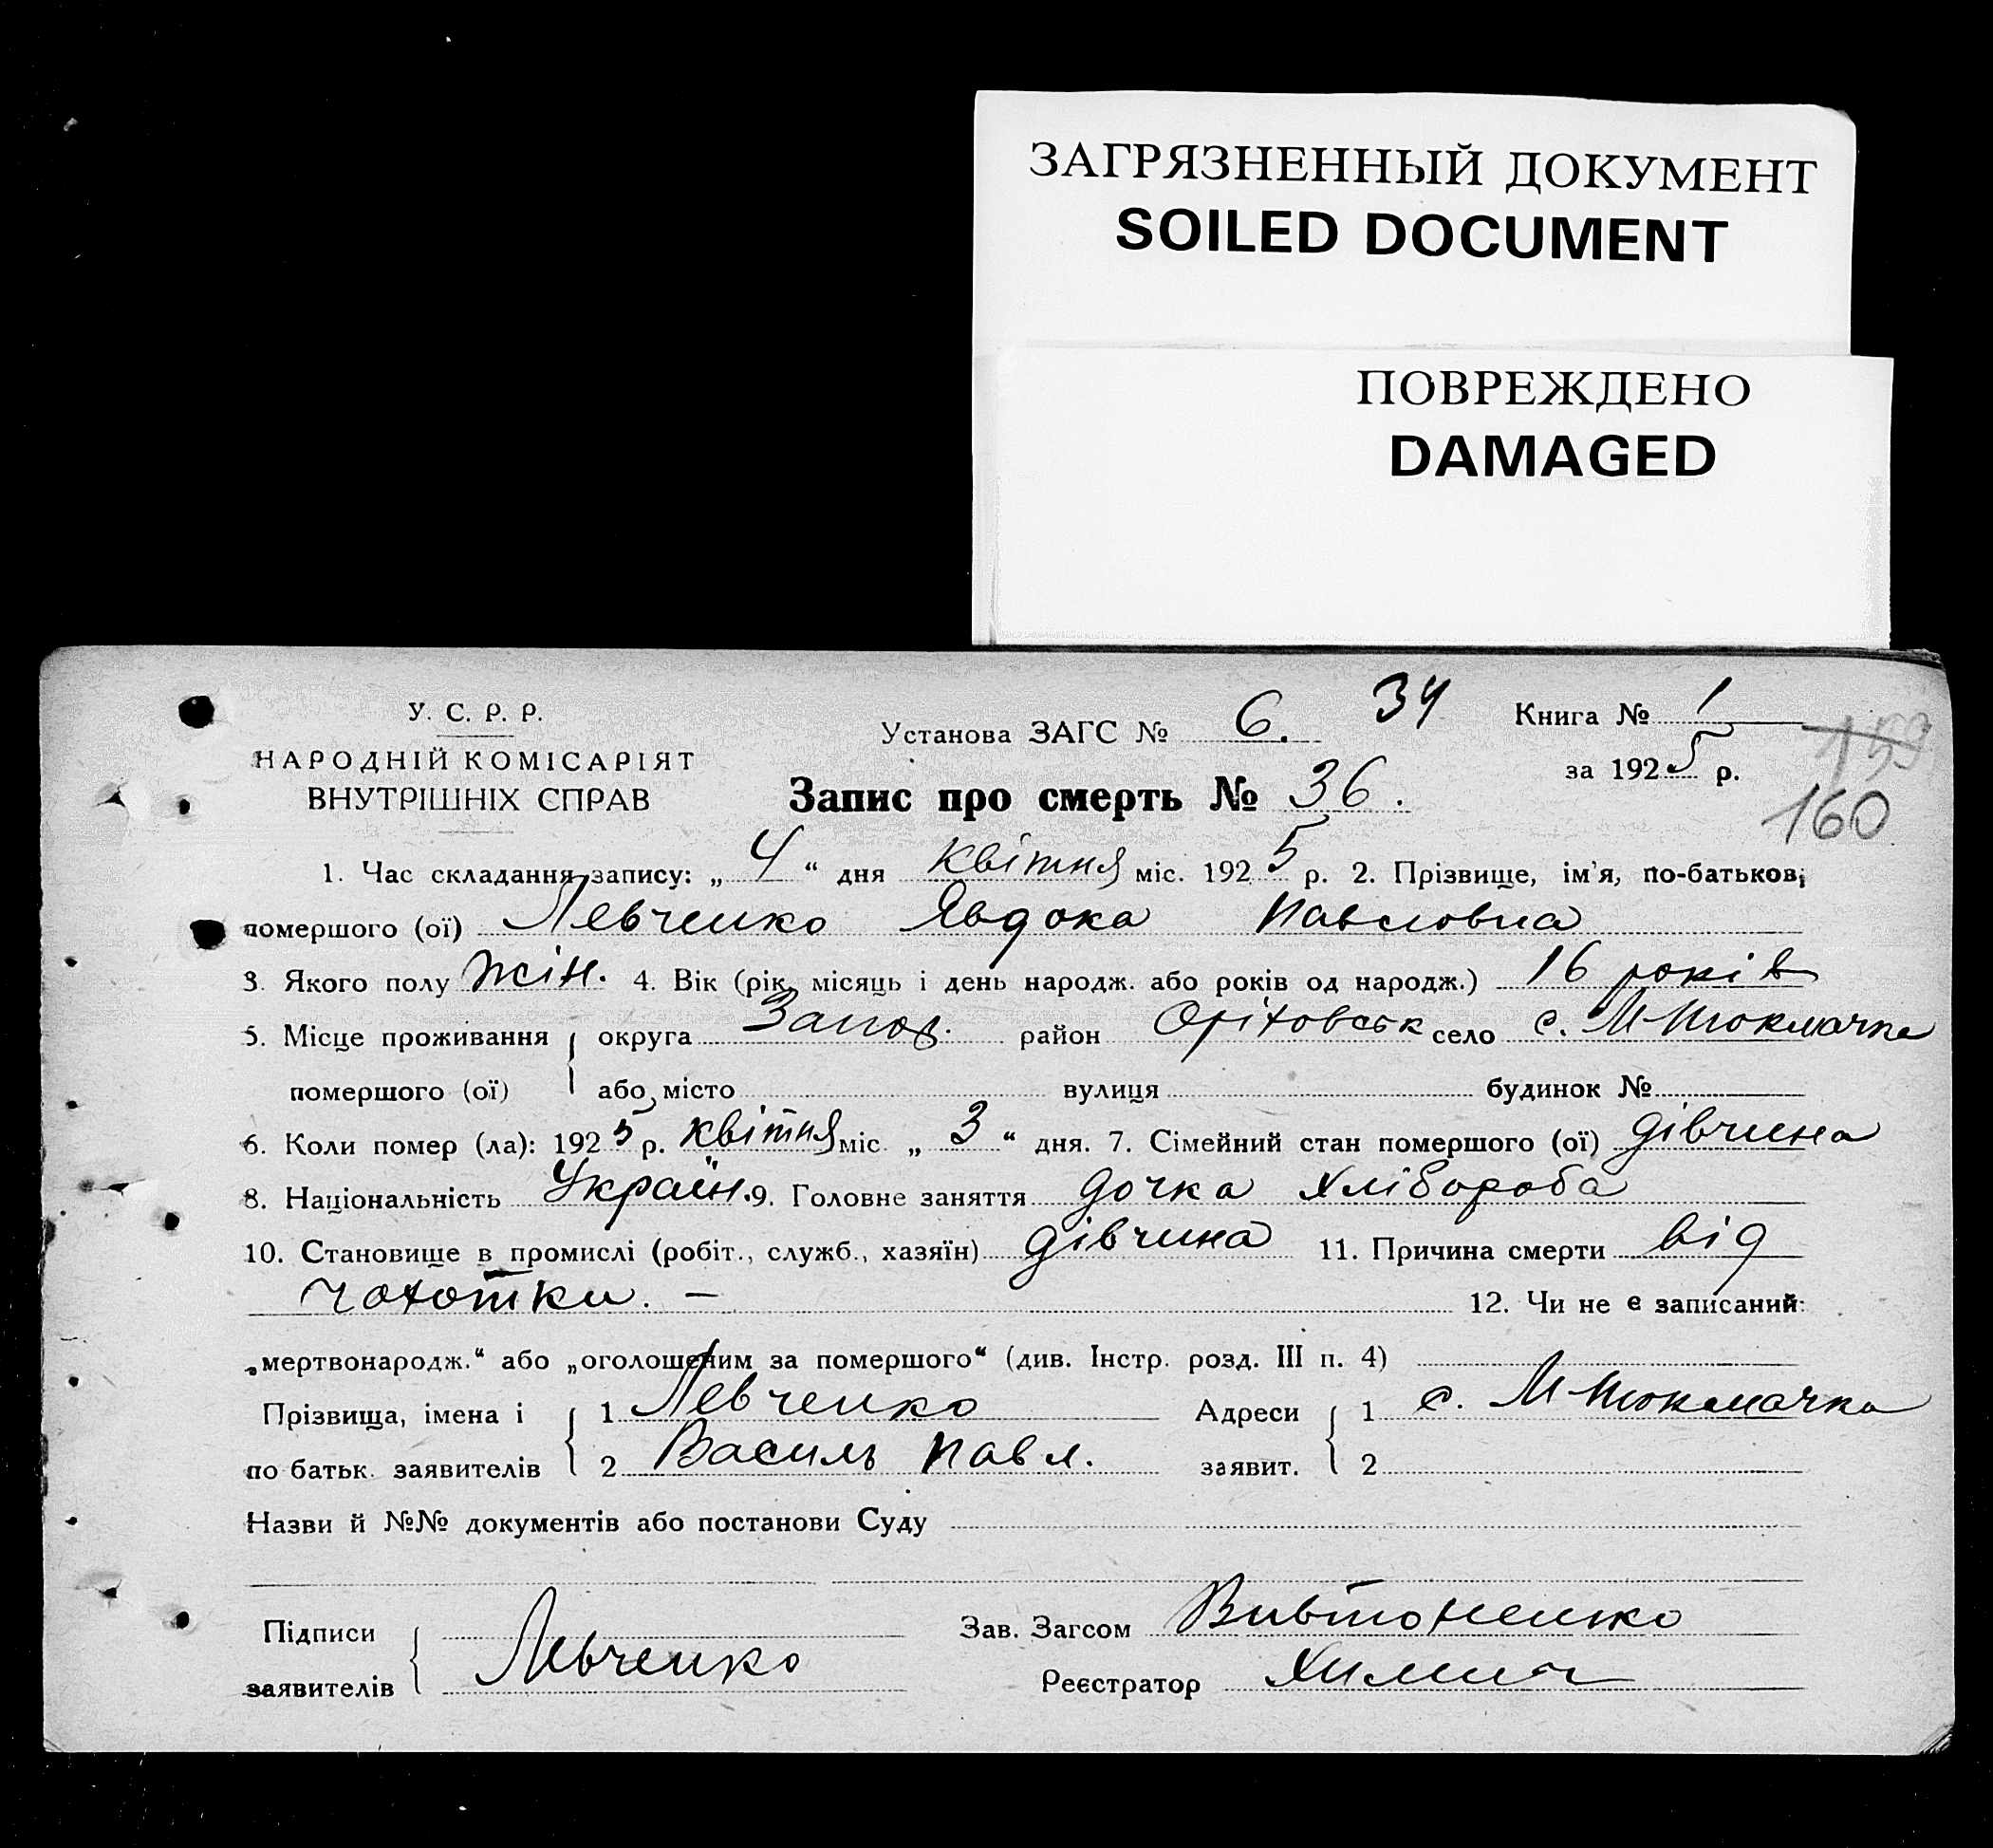 ЗАГРЯЗНЕННЫЙ ДОКУМЕНТ
SOILED DOCUMENT
ПОВРЕЖДЕНО
DAMAGED
У. С. Р. Р.
НАРОДНІЙ КОМІСАРІЯТ
ВНУТРІШНІХ СПРАВ
Установа ЗАГС № 6. 34
Книга № 1
за 1925 р.
159
160
Запис про смерть № 36.
1. Час складання запису: „4“ дня квітня міс. 1925 р. 2. Прізвище, ім'я, по-батькові
помершого (ої) Левченко Явдока Павловна
3. Якого полу жін. 4. Вік (рік, місяць і день народж. або років од народж.) 16 років
5. Місце проживання округа Запор. район Оріховськ село с. М-Токмачка
помершого (ої) або місто вулиця будинок №
6. Коли помер (ла): 1925 р. квітня міс. „3“ дня. 7. Сімейний стан помершого (ої) дівчина
8. Національність Україн. 9. Головне заняття дочка хлібороба
10. Становище в промислі (робіт., служб., хазяїн) дівчина 11. Причина смерти від
чохотки. – 12. Чи не є записаний:
„мертвонародж.“ або „оголошеним за помершого“ (див. Інстр. розд. III п. 4)
Прізвища, імена і 1 Левченко Адреси 1 с. М-Токмачка
по батьк. заявителів 2 Василь Павл. заявит. 2
Назви й №№ документів або постанови Суду
Підписи Зав. Загсом
заявителів Левченко Реєстратор